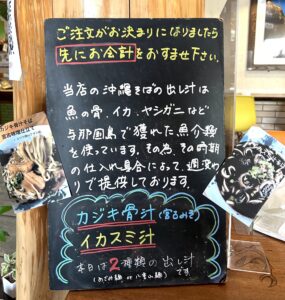 ご注文がお決まりになりましたら
先にお会計をおすませ下さい。
当店の沖縄そばの出し汁は
魚の骨、イカ、ヤシガニなど
与那国島で獲れた魚介類
を使っています。その為、その時期
の仕入れ具合によって、週変わ
りで提供しております。
カジキ骨汁
イカスミ汁
本日は2種類の出し汁
です